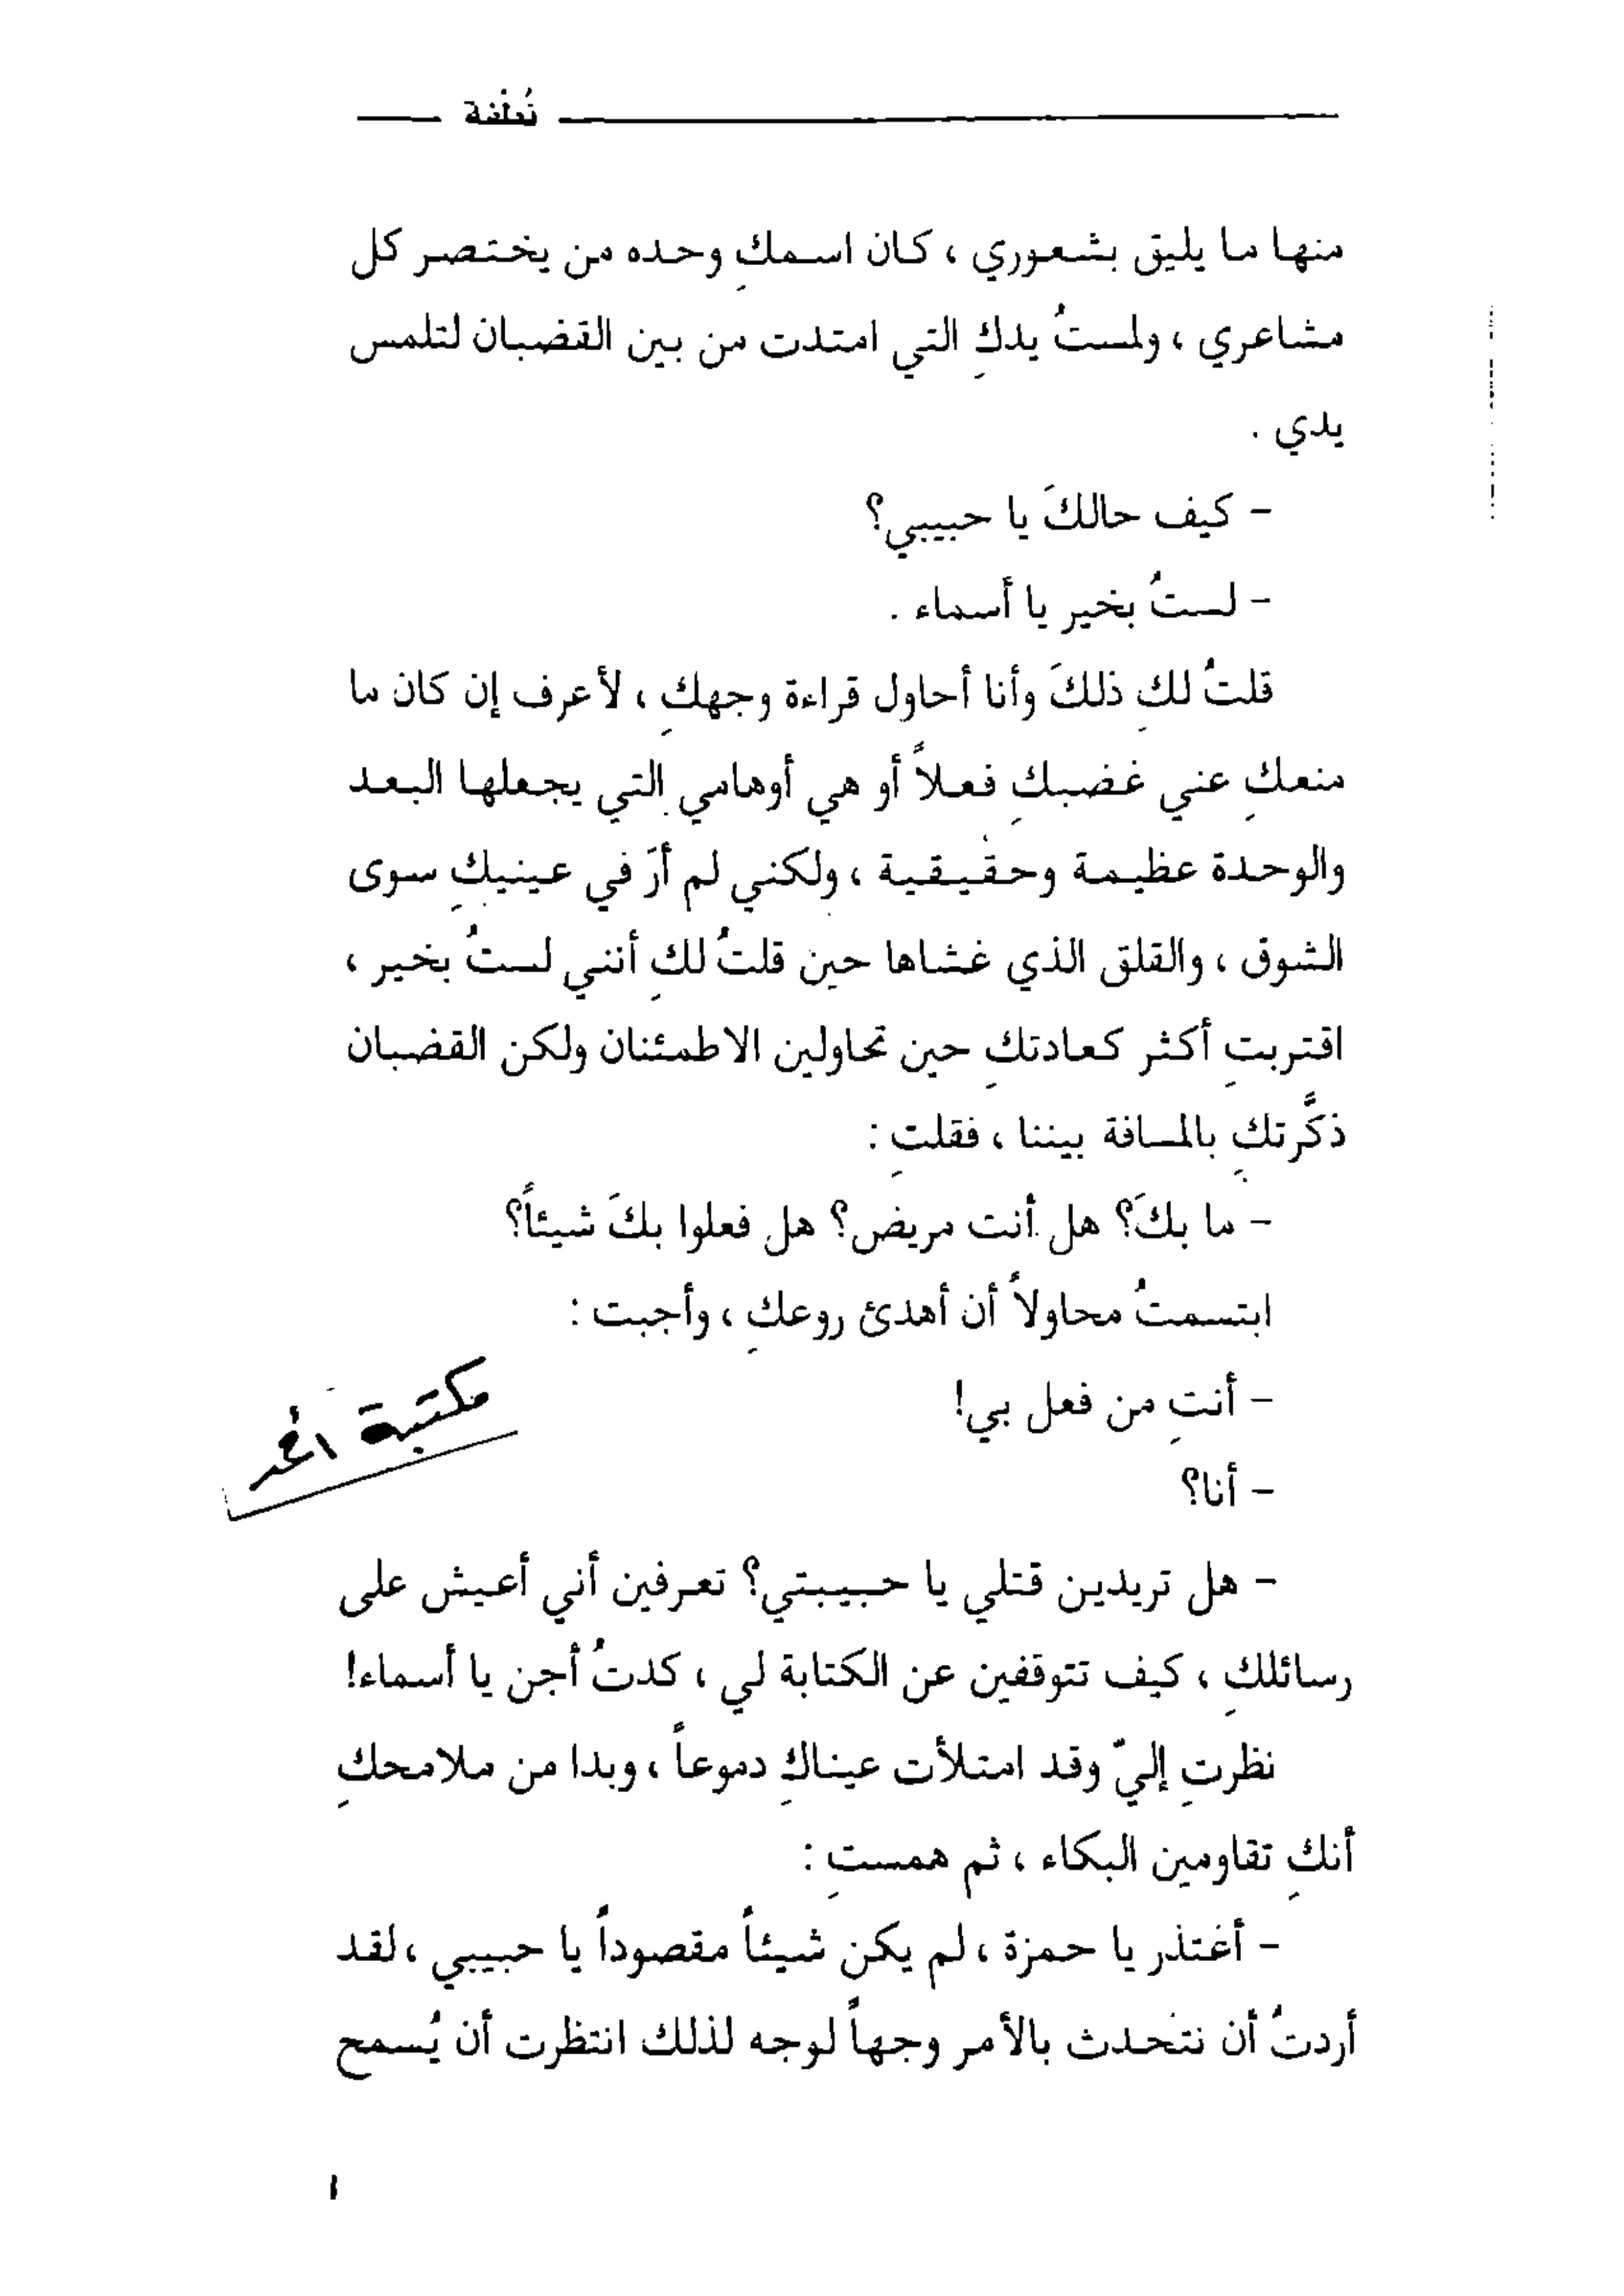 نُطفة
منها ما يليق بشعوري ، كان اسمكِ وحده من يختصر كل
مشاعري ، ولمستُ يدكِ التي امتدت من بين القضبان لتلمس
يدي .
- كيف حالكَ يا حبيبي؟
- لستُ بخير يا أسماء .
قلتُ لكِ ذلكَ وأنا أحاول قراءة وجهكِ ، لأعرف إن كان ما
منعكِ عني غضبكِ فعلاً أو هي أوهامي التي يجعلها البعد
والوحدة عظيمة وحقيقية ، ولكني لم أرَ في عينيكِ سوى
الشوق ، والقلق الذي غشاها حين قلتُ لكِ أنني لستُ بخير ،
اقتربتِ أكثر كعادتكِ حين تحاولين الاطمئنان ولكن القضبان
ذكَّرتكِ بالمسافة بيننا ، فقلتِ :
- ما بكَ؟ هل أنت مريض؟ هل فعلوا بكَ شيئاً؟
ابتسمتُ محاولاً أن أهدئ روعكِ ، وأجبت :
- أنتِ من فعل بي!
مكتبة أحمد
- أنا؟
- هل تريدين قتلي يا حبيبتي؟ تعرفين أني أعيش على
رسائلكِ ، كيف تتوقفين عن الكتابة لي ، كدتُ أجن يا أسماء!
نظرتِ إليّ وقد امتلأت عيناكِ دموعاً ، وبدا من ملامحكِ
أنكِ تقاومين البكاء ، ثم همستِ :
- أغتذر يا حمزة ، لم يكن شيئاً مقصوداً يا حبيبي ، لقد
أردتُ أن نتحدث بالأمر وجهاً لوجه لذلك انتظرت أن يُسمح
١